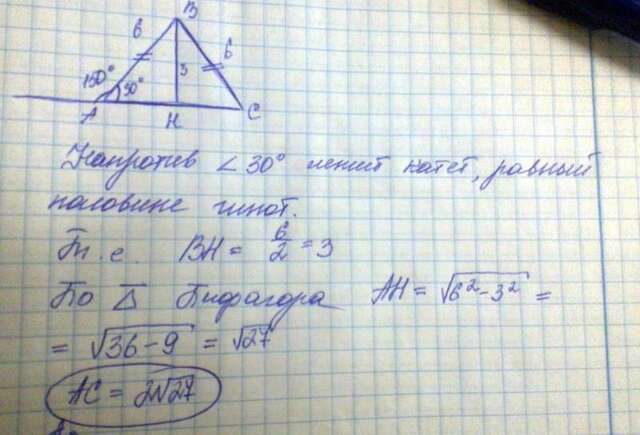 B
6
6
150°
30°
3
A
H
C
Напротив ∠30° лежит катет, равный
половине гипот.
Т.е. BH = 6/2 = 3
По Δ Пифагора AH = √6²-3² =
= √36-9 = √27
AC = 2√27